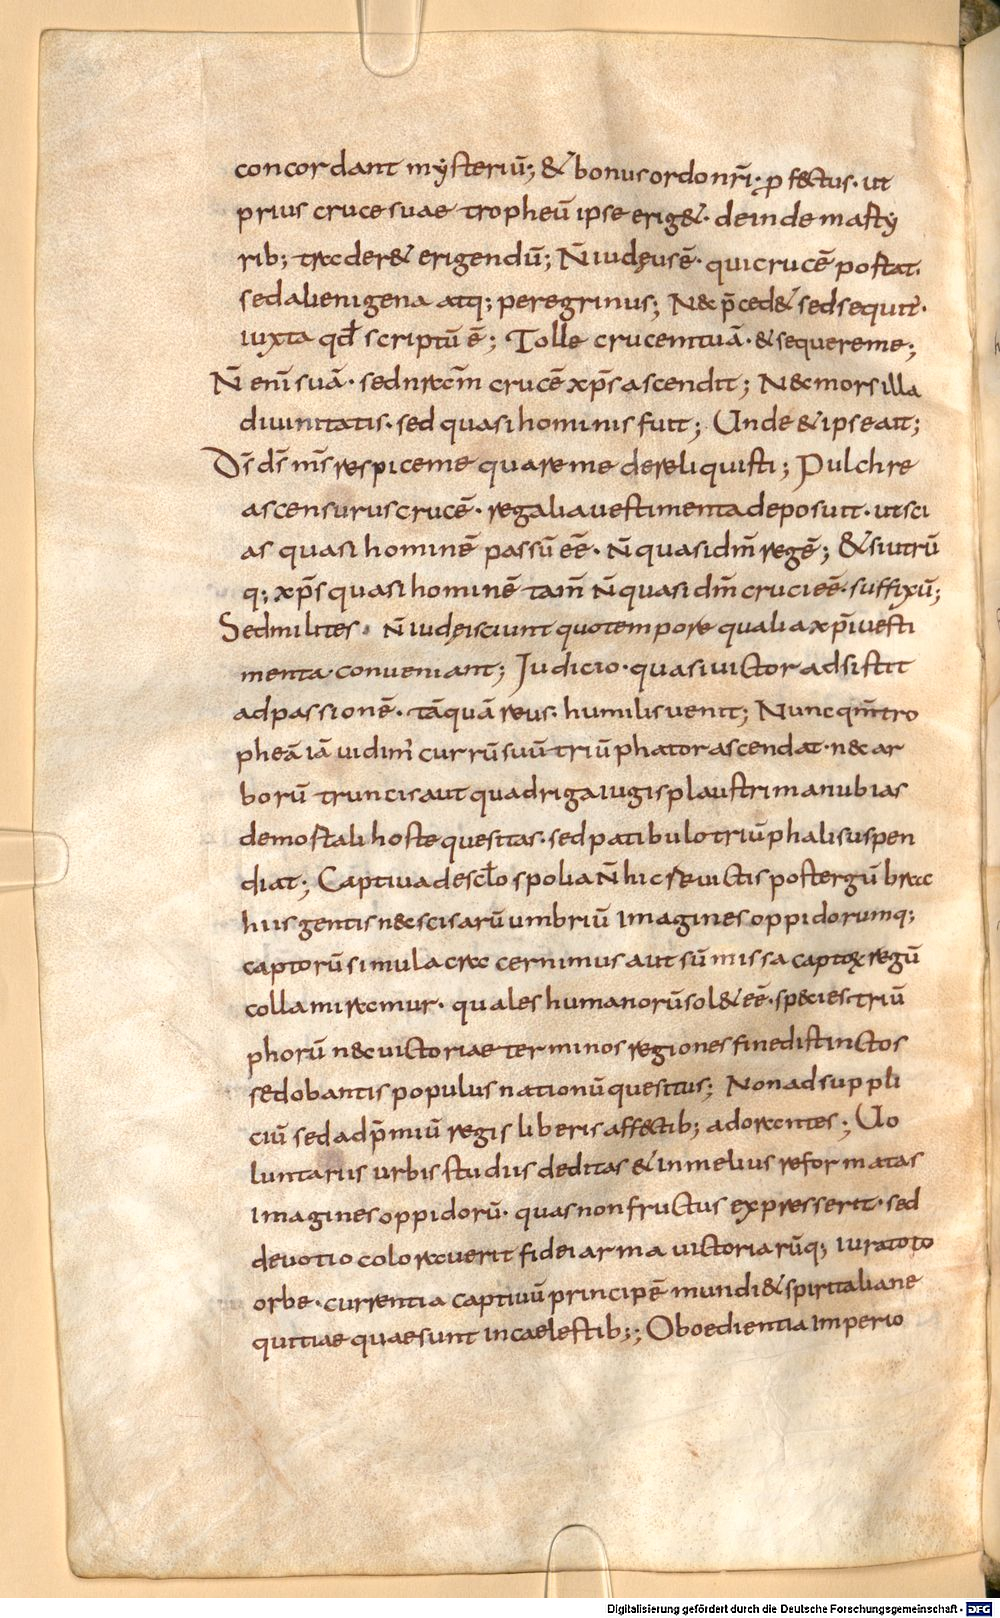 concordant mysteriū; & bonus ordo nr̄i· ꝓfectus· ut
prius cruce suae tropheū ipse erig&· deinde masty
rib; trader& erigendū; N̄ iudęus ē· qui crucē postat·
sed alienigena atq; peregrinus; Nec p̄ced& sed sequit̄·
iuxta qd̄ scriptū ē; Tolle crucem tuā· & sequere me;
N̄ enī suā· sed nr̄acm̄ crucē xp̄s ascendit; Nec mors illa
diuinitatis· sed quasi hominis fuit; Unde & ipse ait;
Ds̄ ds̄ ms̄ respice me quare me dereliquisti; Pulchre
ascensurus crucē· regalia uestimenta deposuit· ut sci
as quasi hominē passū eē· n̄ quasi dm̄ regē; & si utrū
q; xp̄s quasi hominē tam̄ n̄ quasi dm̄ cruci eē· suffixū;
Sed milites· n̄ iudęi sciunt quo tempore qualia xp̄i uesti
menta· conueniant; Iudicio· quasi uictor adsistit
ad passionē· tāquā reus· humilis uenit; Nunc qm̄ tro
pheā iā uidim' currū suū triūphator ascendat· nec ar
borū truncis aut quadriga iugis plaustri manubias
de mostali hoste quesitas· sed patibulo triūphali suspen
diat; Captiua de scl̄o spolia n̄ hic reuictis post ergū brac
hiis gentis nec scisarū umbriū imagines oppidorumq;
captorū simulacra cernimus aut sū missa captoꝝ regū
colla miramur· quales humanorū sol& eē· species triū
phorū nec uictoriae terminos regiones fine distinctos
sed obantis populus nationū quesitus; Non ad suppli
ciū sed ad p̄miū regis liberis affectib; adorantes; Uo
luntariis urbis studiis deditas & in melius reformatas
imagines oppidorū· quas non fructus expresserit· sed
deuotio colorauerit fidei arma uictoriarūq; iura toto
orbe· currentia captiuū principē mundi & spiritalia ne
quitiae quae sunt in caelestib;; Oboedientia imperio
Digitalisierung gefördert durch die Deutsche Forschungsgemeinschaft - DFG